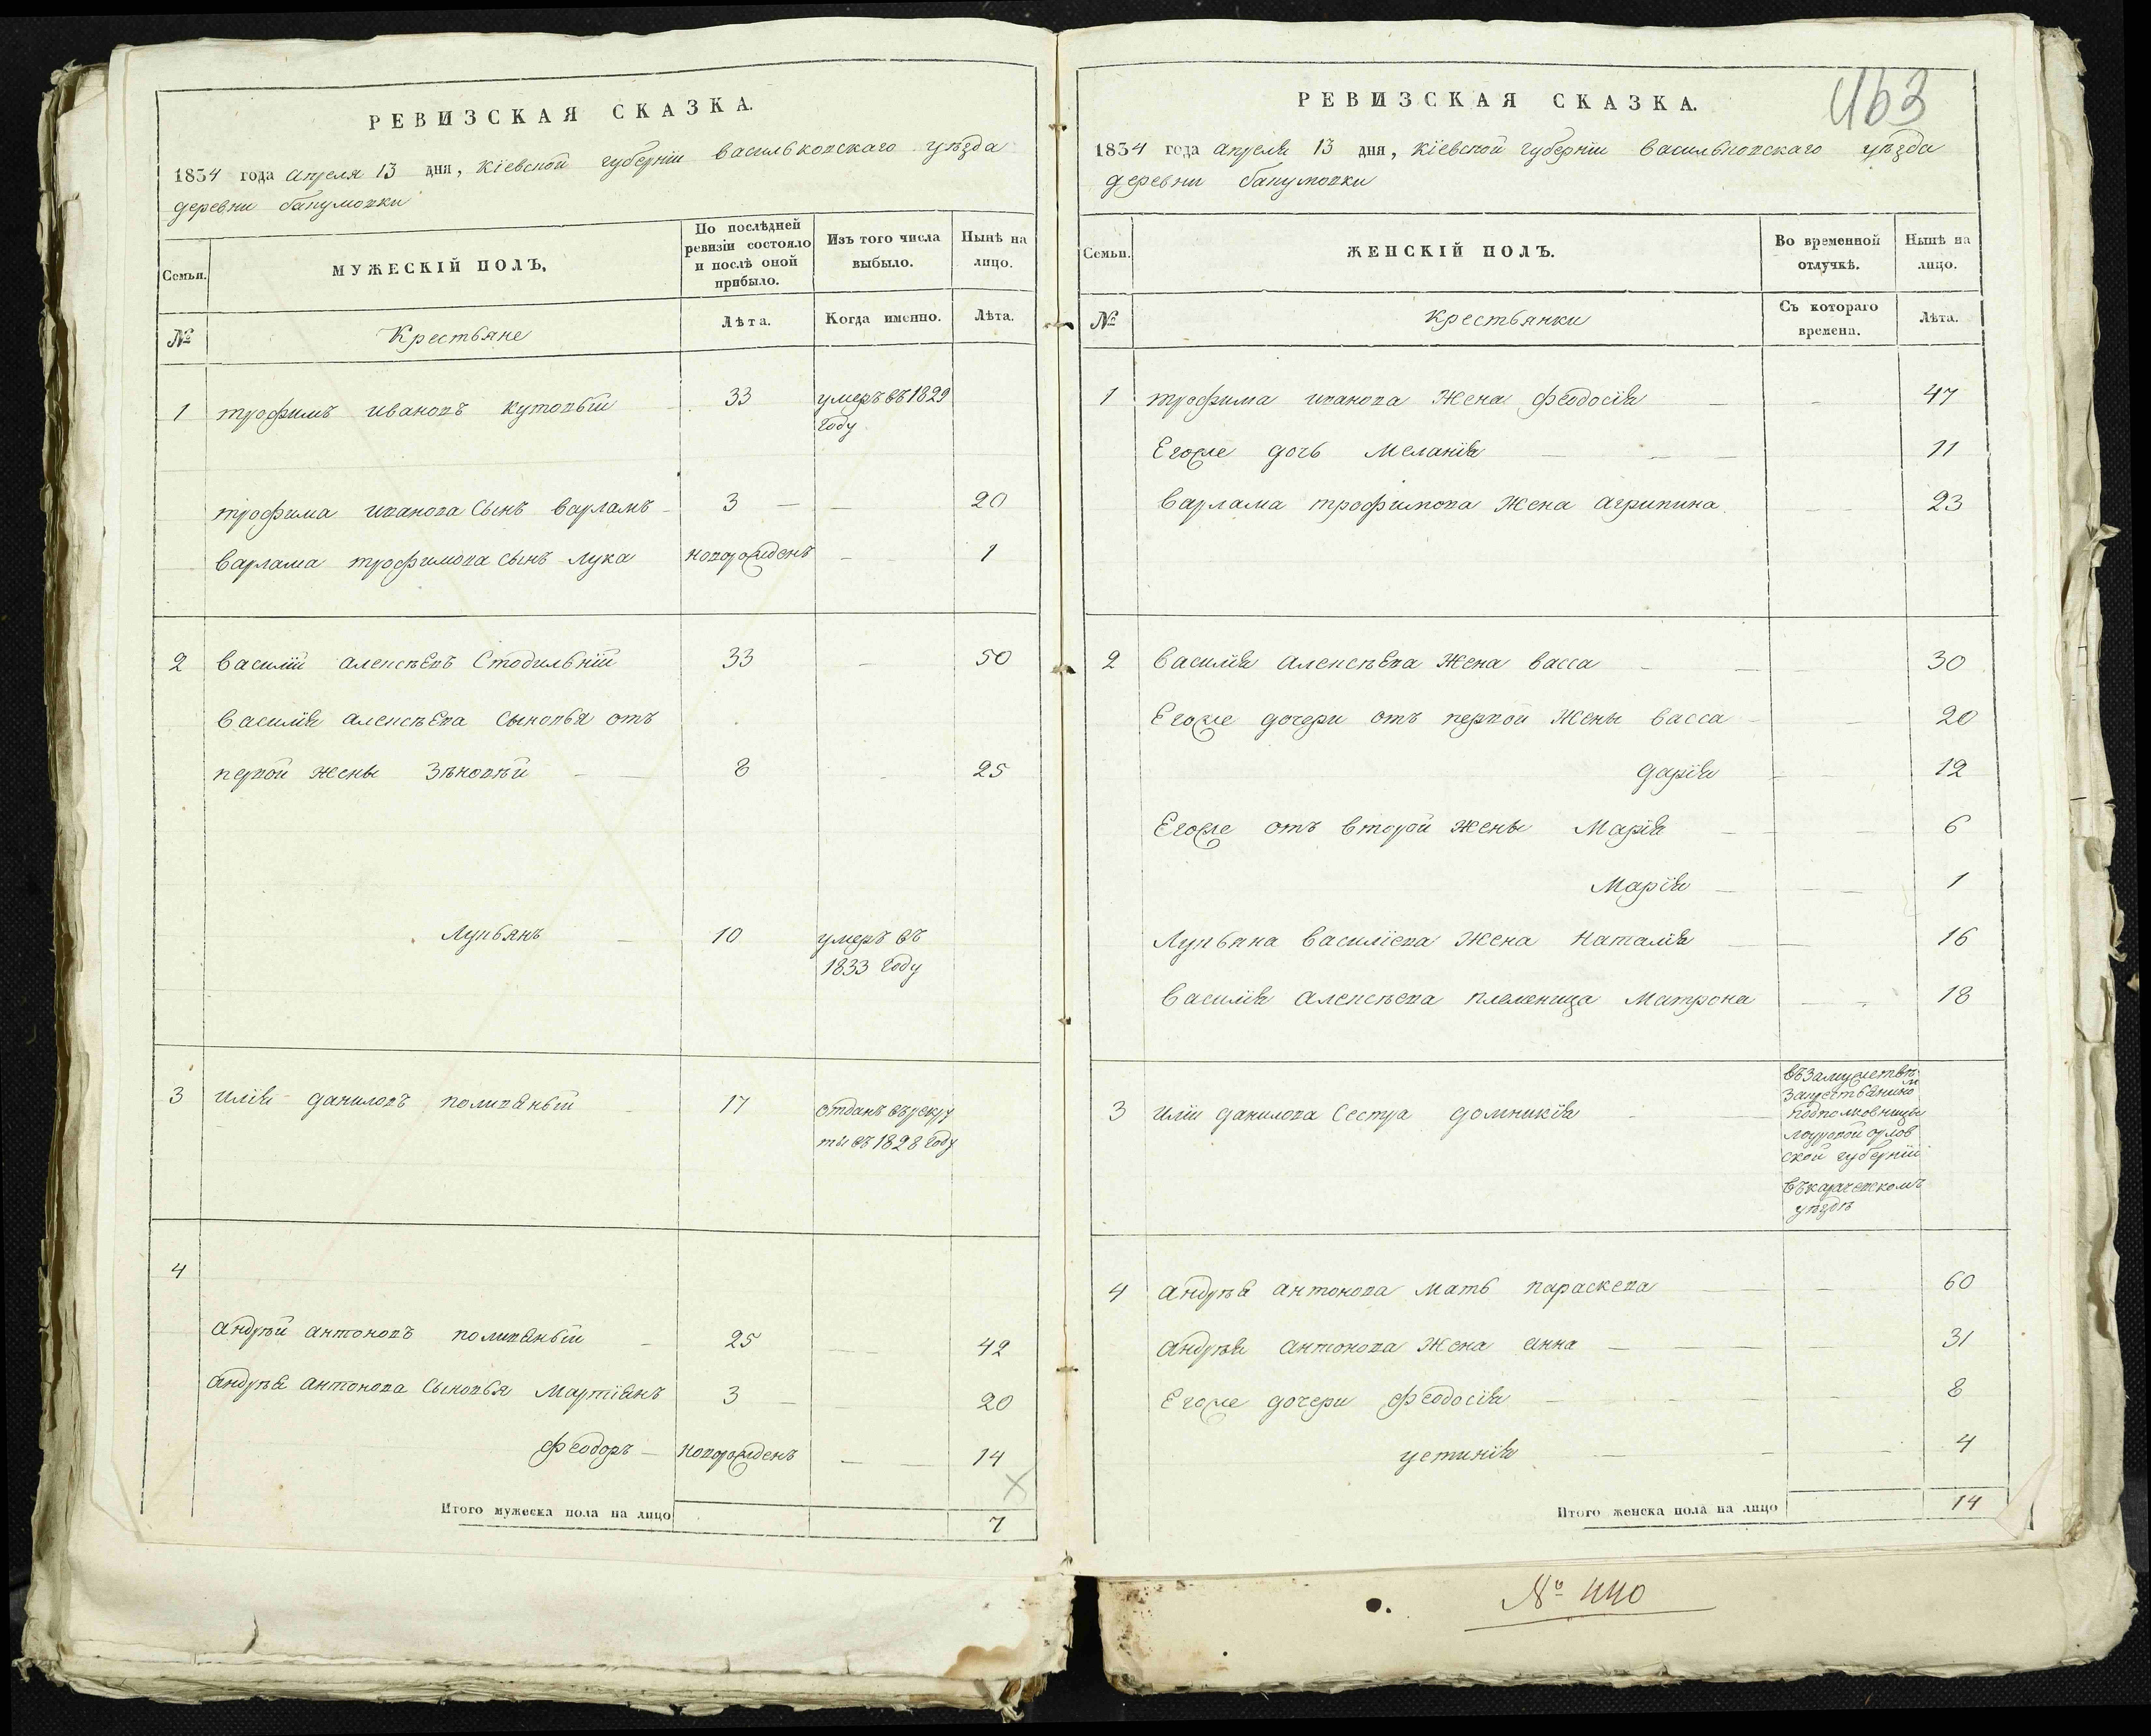 РЕВИЗСКАЯ СКАЗКА.
1834 года апреля 13 дня, Кіевской губерніи васильковскаго уѣзда
деревни
Семьи.
МУЖЕСКІЙ ПОЛЪ.
По послѣдней
ревизіи состояло
и послѣ оной
прибыло.
Изъ того числа
выбыло.
Нынѣ на
лицо.
№
Крестьяне
Лѣта.
Когда именно.
Лѣта.
1 трофимъ ивановъ кутовый 33 умеръ въ 1829
году
трофима иванова сынъ варламъ 3 20
варлама трофимова сынъ лука новорожденъ 1
2 василій алексѣевъ 33 50
василія алексѣева сыновья отъ
первой жены Зѣновѣй 8 25
Лукьянъ 10 умеръ въ
1833 году
3 илія даниловъ поливяный 17 отданъ въ рекру
ты въ 1828 году
4
андрѣй антоновъ поливяный 25 42
андрѣя антонова сыновья Мартіянъ 3 20
Феодоръ новорожденъ 14
Итого мужеска пола на лицо 7
463
РЕВИЗСКАЯ СКАЗКА.
1834 года апреля 13 дня, Кіевской губерніи васильковскаго уѣзда
деревни
Семьи.
ЖЕНСКІЙ ПОЛЪ.
Во временной
отлучкѣ.
Нынѣ на
лицо.
№
Крестьянки
Съ котораго
времена.
Лѣта.
1 трофима иванова жена феодосія 47
Егоже дочь Меланія 11
варлама трофимова жена агрипина 23
2 василія алексѣева жена васса 30
Егоже дочери отъ первой жены васса 20
дарія 12
Егоже отъ второй жены Марія 6
Марія 1
Лукьяна василіева жена наталія 16
василія алексѣева племеница Матрона 18
въ замужствѣ
подполковницы
орлов
3 иліи данилова сестра домникія
ской губерніи
въ карачевскомъ
уѣздѣ
4 андрѣя антонова мать параскева 60
андрѣя антонова жена анна 31
Егоже дочери феодосія 8
устинія 4
Итого женска пола на лицо 14
№ 440